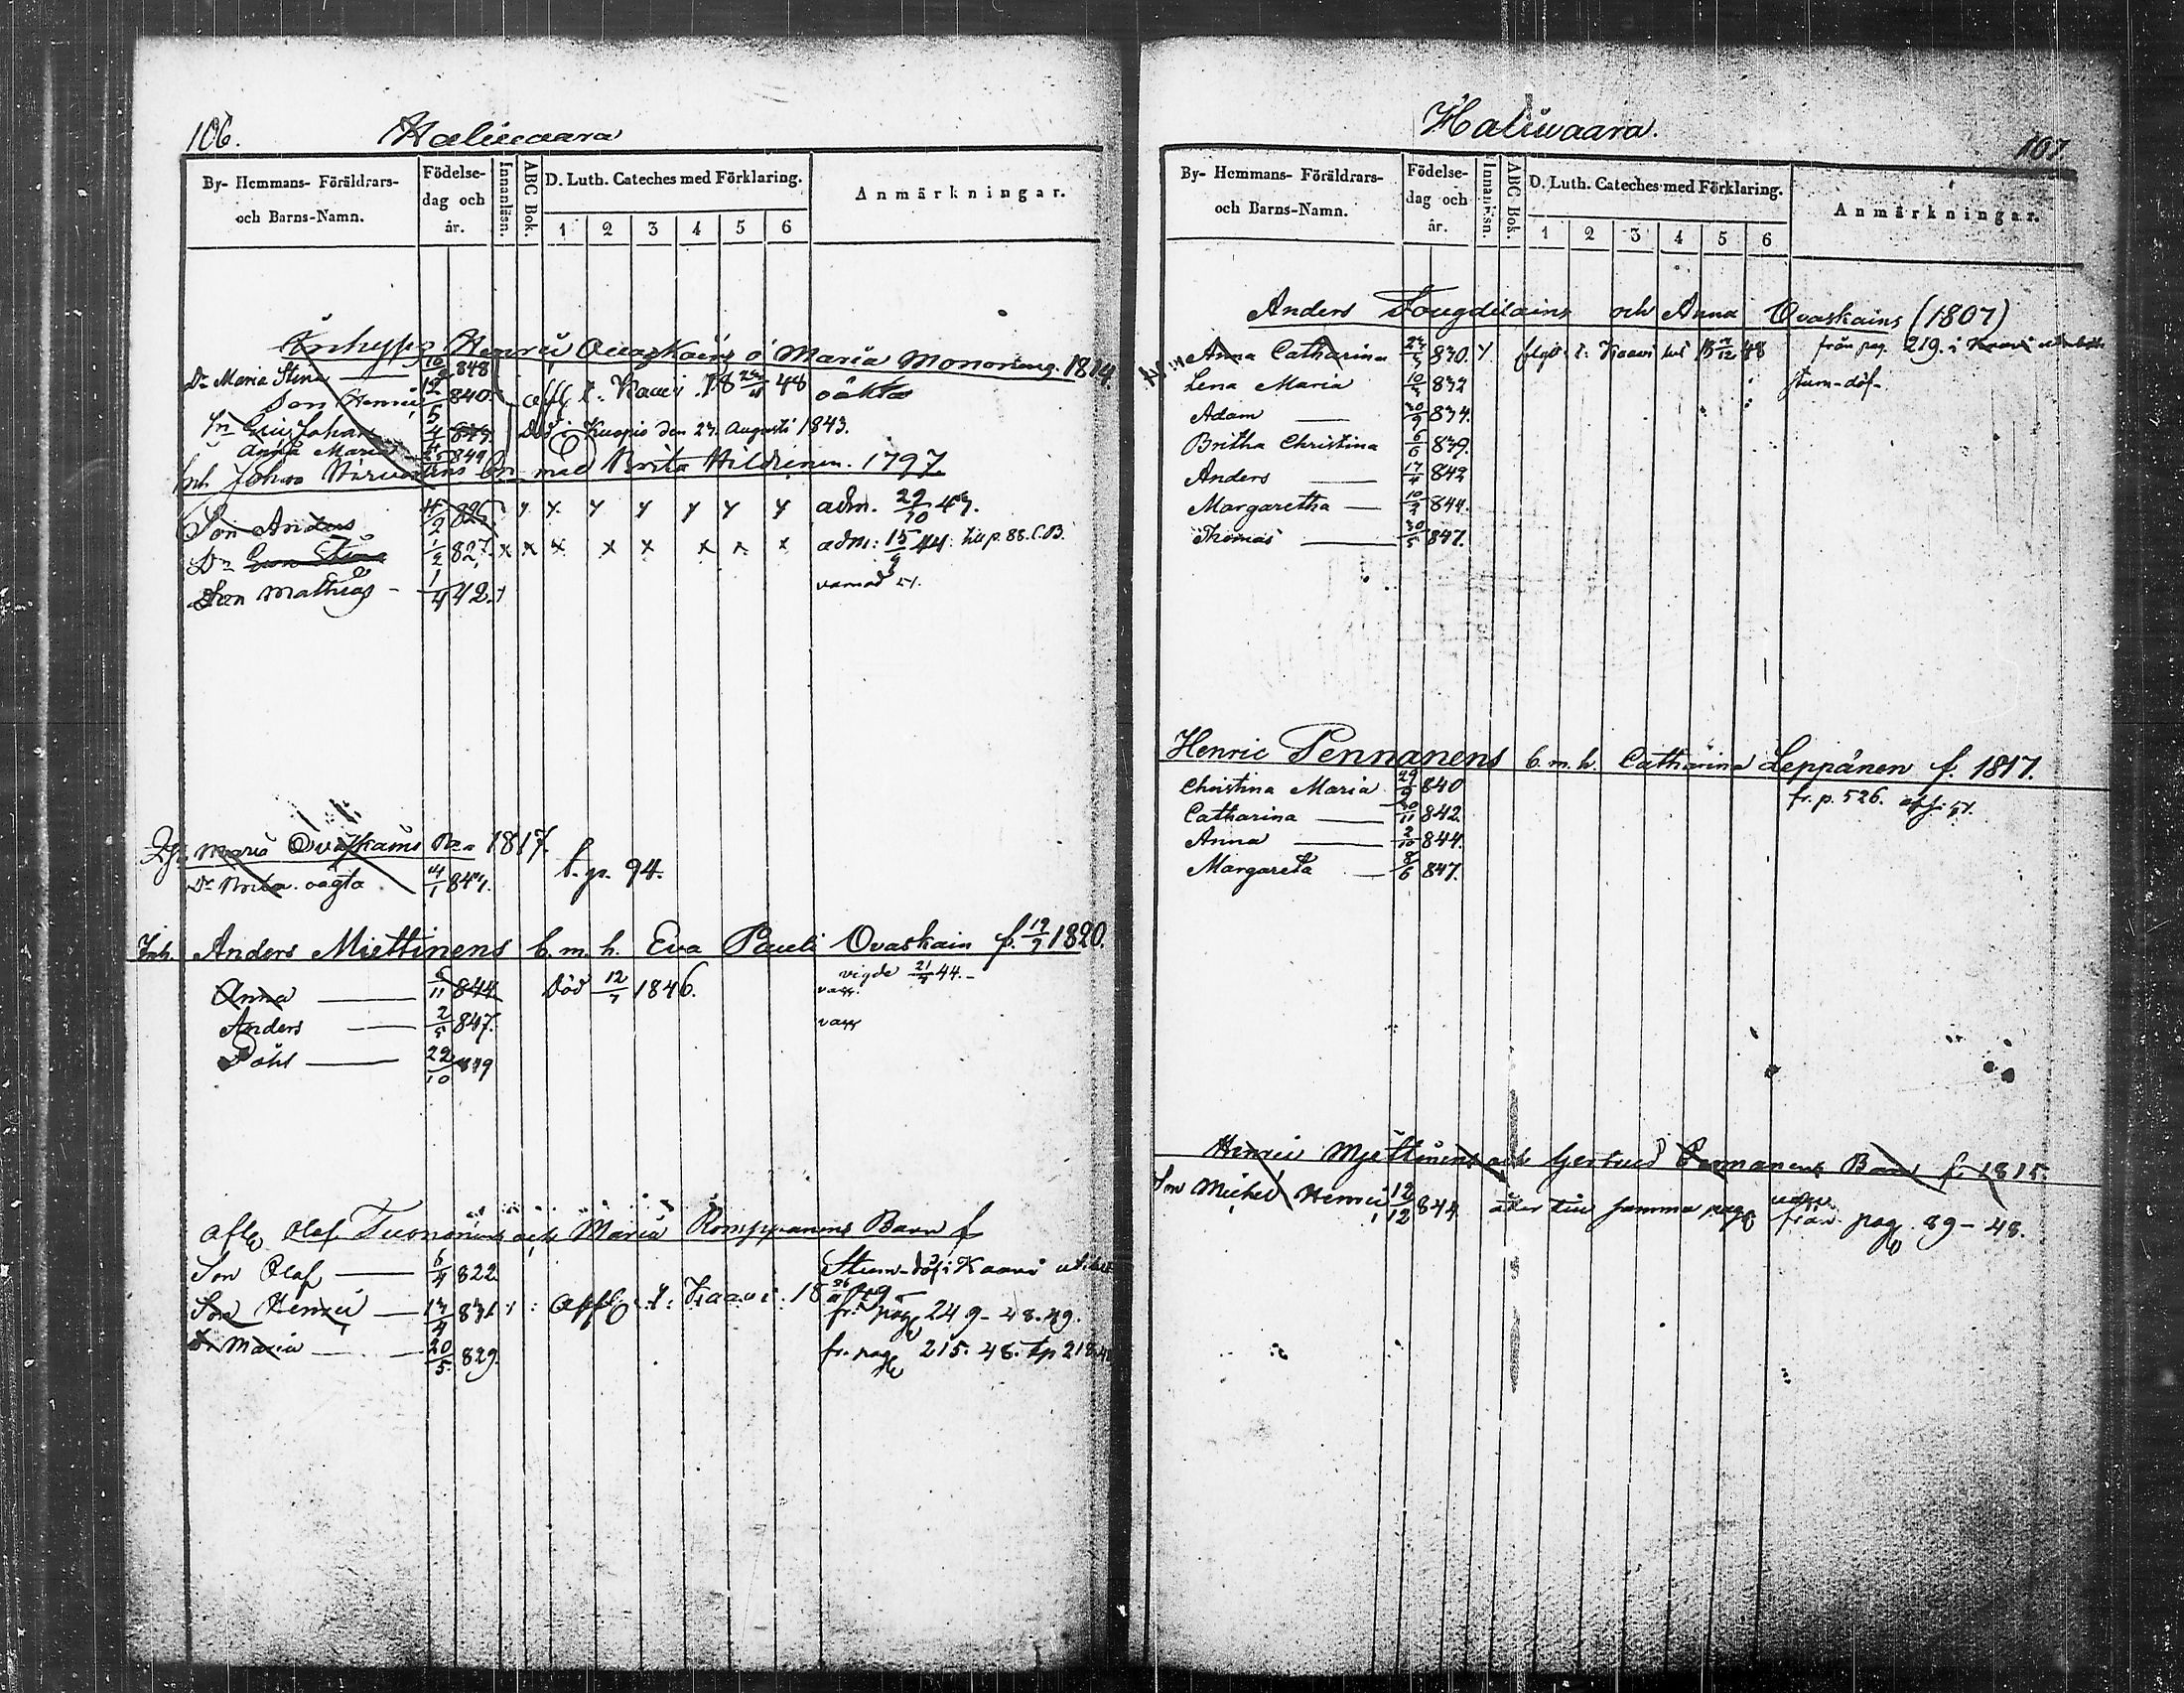 106. Halivaara
By- Hemmans- Föräldrars- och Barns-Namn.
Födelse- dag och år.
Innanläsn.
ABC Bok.
D. Luth. Cateches med Förklaring.
1 2 3 4 5 6
Anmärkningar.
Inhyses Henric Ovaskains o Maria Mononens. 1814
Dr Maria Stina 848
Son Henric 12/5 840. affl t. Kaavi 18 48 oäkta
Johan 4/4 843. Död i Kuopio den 27. Augusti 1843.
Anna Maria 849
Inh. Johan med Brita Hildinen. 1797.
Son Anders 4/2 825. y y y y y y y adm. 29/10 43.
Dr 1/2 827. x x x x x x x x adm: 15/9 44. till p. 88. C.B.
Son Mathias - 1/4 42. vaxad 51.
Maria Ovaskains 1817.
Dr Brita. oägta 14/1 841. b. p. 94.
Inh. Anders Miettinens b. m. h. Eva Pauli Ovaskain f. 12/7 1820.
vigde 21/4 44.
Anna 5/11 844 Död 12/7 1846. vacc.
Anders 2/5 847. vacc
Påhl 22/10 849
Afl Olof Tuononens och Maria Romppanens Barn f
Son Olof 6/4 822 Stum-döf i Kaavi
Son Henric 13/4 831 Affl t. Kaavi 18 26/11 49
fr. pag 249-48.49.
Dr Maria 20/5. 829. fr. pag 215. 48. tp 218
Halivaara. 107
By- Hemmans- Föräldrars- och Barns-Namn.
Födelse- dag och år.
Innanläsn.
ABC Bok.
D. Luth. Cateches med Förklaring.
1 2 3 4 5 6
Anmärkningar.
Anders Fougdilains och Anna Ovaskains (1807)
Anna Catharina 830. y t. Kaavi 48 från pag. 219. i Kaavi
Lena Maria 832 stum-döf-
Adam 30/9 834.
Britha Christina 6/6 839.
Anders 17/4 842
Margaretha 10/2 844.
Thomas 30/5 847.
Henric Pennanens b. m. h. Catharina Leppänen f. 1817.
Christina Maria 29/9 840 fr. p. 526. aff. 51.
Catharina 30/11 842.
Anna 2/10 844.
Margareta 8/6 847.
Henric Mjettinens och Gertrud Pennanens Barn f. 1815.
Son Michel Henric 12/12 844 åter till samma pag vacc.
från pag. 89-48.